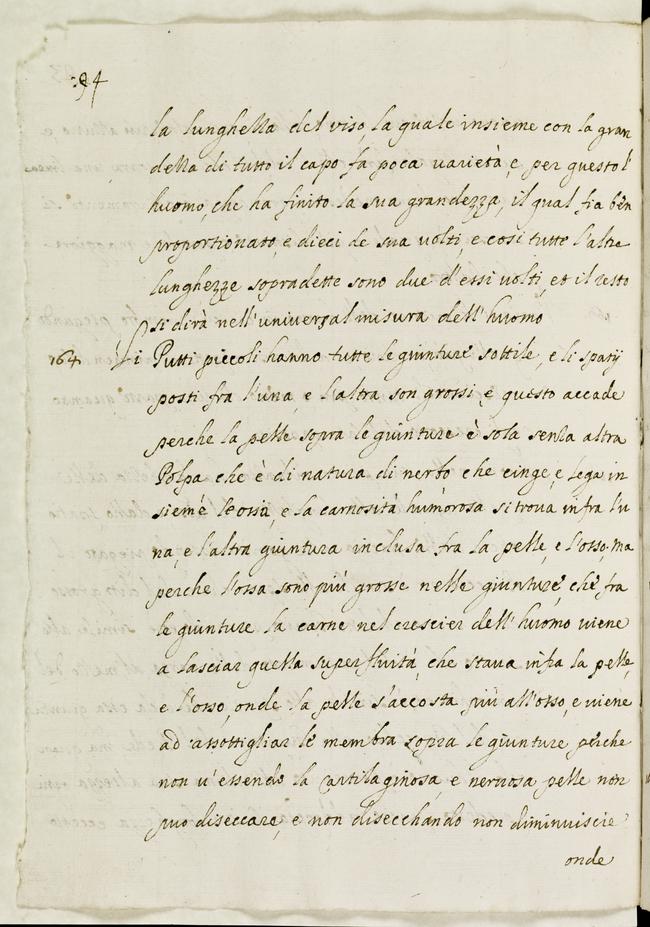 94
la lunghezza del viso, la quale insieme con la gran
dezza di tutto il capo fa poca varietà, e per questo l'
huomo, che ha finito la sua grandezza, il qual fia bën
proportionato, e dieci de sua volti, e così tutte l'altre
lunghezze sopradette sono due d'essi volti, et il resto
si dirà nell'universal misura dell'huomo
164 Li Putti piccoli hanno tutte le giunture sottile, e li spatij
posti fra l'una, e l'altra son grossi, e questo accade
perche la pelle sopra le giunture è sola senza altra
Polpa che è di natura di nerbo che cinge, e lega in
sieme le ossa, e la carnosità humorosa si trova infra l'u
na, e l'altra giuntura inclusa fra la pelle, e l'osso, ma
perche l'ossa sono più grosse nelle giunture, che fra
le giunture la carne nel crescier dell'huomo viene
a lasciar quella superfluità, che stava infra la pelle,
e l'osso, onde la pelle s'accosta più all'osso, e viene
ad assottigliar le membra sopra le giunture perche
non v'essendo la cartilaginosa, e nervosa pelle non
può diseccare, e non disecchando non diminuiscie
onde